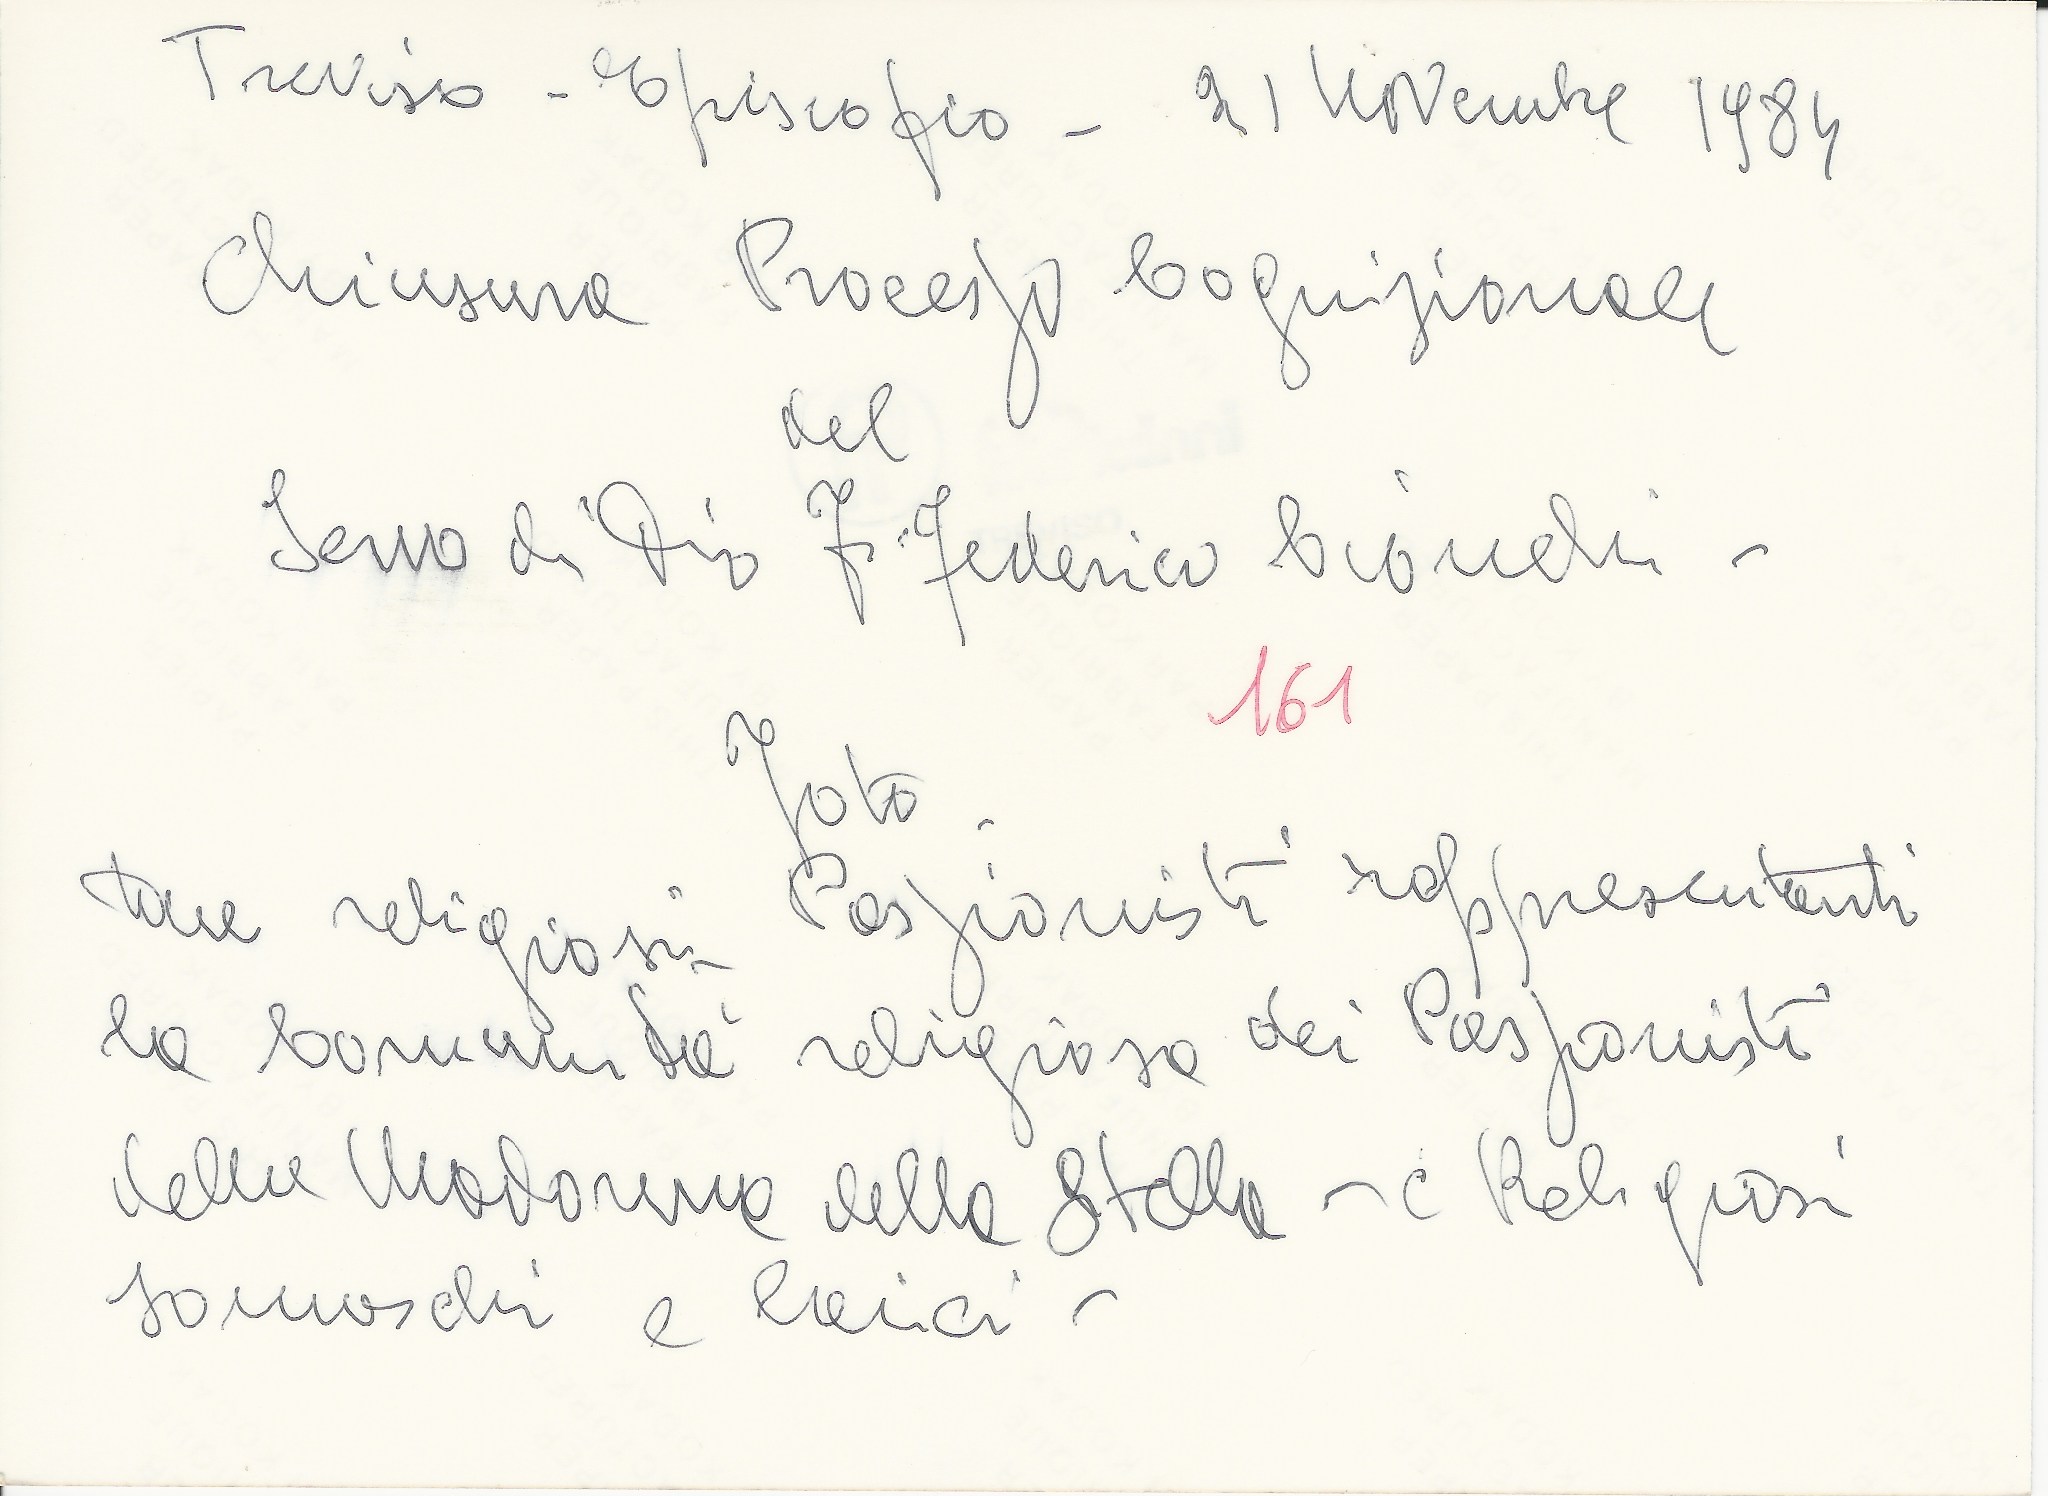 Treviso - Episcopio - 21 Novembre 1984
Chiusura Processo Cognizionale
del
Servo di Dio F. Federico Cionchi -
161
Foto
tre religiosi - Passionisti rappresentanti
la Comunità religiosa dei Passionisti
della Madonna della Stella - e Religiosi
somaschi e laici -